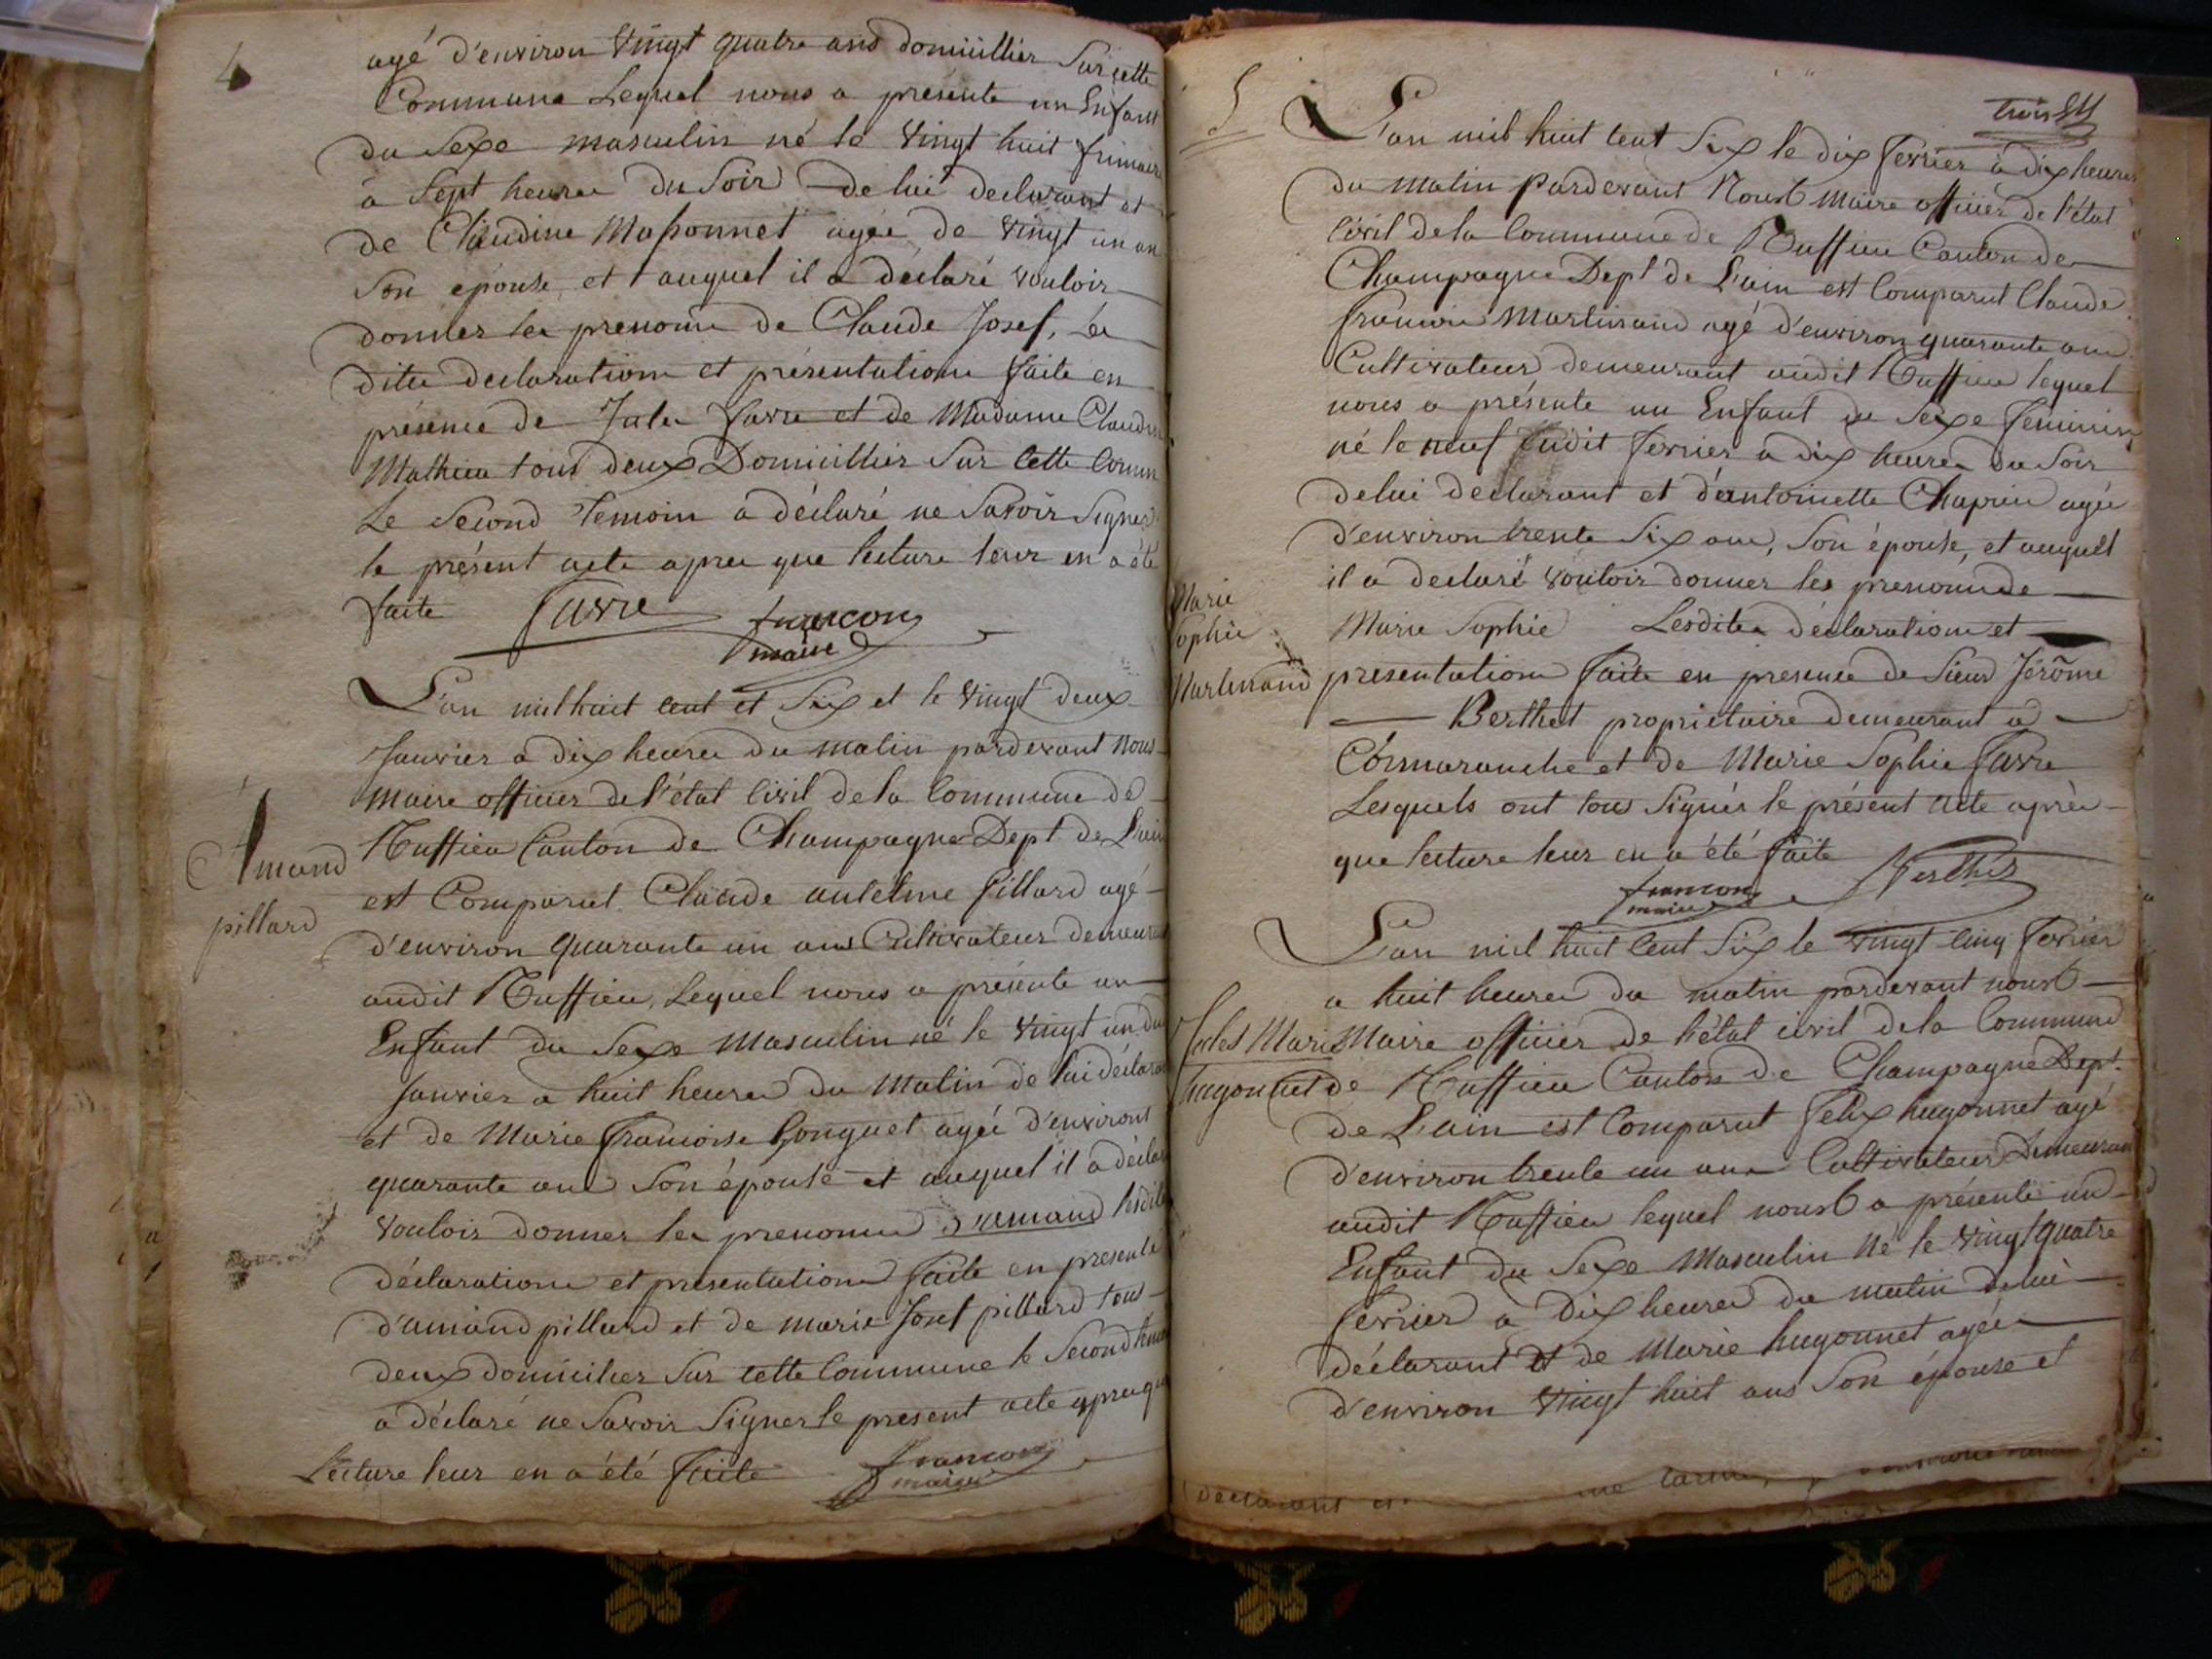 4
agé d'environ vingt quatre ans domicillier sur cette
Commune Lequel nous a présenté un Enfant
du sexe masculin né le vingt huit frimaire
à sept heures du soir de lui declarant et
de Claudine Massonnet agée de vingt un an
son épouse, et auquel il a déclaré vouloir
donner les prenoms de Claude Josef, Les
dites declarations et présentations faite en
présence de Jules favre et de Madame Claudine
Mathieu tous deux Domicillier sur cette Comm
Le second temoin a déclaré ne savoir signer
le présent acte apres que lecture leur en a été
faite favre francon
maire
L'an mil huit cent et six et le vingt deux
Janvier a dix heures du matin pardevant Nous
maire officier de l'état Civil de la Commune de
Ruffieu Canton de Champagne Dept de L'ain
Amand
pillard
est Comparut Claude antelme pillard agé
d'environ quarante un ans Cultivateur demeurant
audit Ruffieu, Lequel nous a présenté un
Enfant du sexe Masculin né le vingt un du
Janvier a huit heures du Matin de lui déclarant
et de Marie françoise Gonguet agée d'environt
quarante ans son épouse et auquel il a déclaré
vouloir donner les prenoms d'amand lesdites
déclarations et presentations faite en presence
d'amand pillard et de marie Josef pillard tous
deux domicilier sur cette Commune le second temoin
a déclaré ne savoir signer le present acte apres que
Lecture leur en a été faite francon
maire
5
trois
L'an mil huit cent six le dix fevrier à dix heures
du matin Pardevant Nous Maire officier de l'état
Civil de la Commune de Ruffieu Canton de
Champagne Dept de L'ain est Comparut Claude
françois Martinand agé d'environ quarante ans
Cultivateur demeurant audit Ruffieu lequel
nous a présenté un Enfant du sexe feminin
né le neuf dudit fevrier a dix heures du soir
de lui declarant et d'antoinette Chapuis agée
d'environ trente six ans, son épouse, et auquel
il a declaré vouloir donner les prenoms de
Marie
Sophie
Martinand
Marie Sophie Lesdites déclarations et
presentations faite en presence de sieur Jérôme
Berthet proprietaire demeurant a
Cormaranche et de Marie Sophie favre
Lesquels ont tous signés le présent acte après
que lecture leur en a été faite
francon
maire Berthet
L'an mil huit cent six le vingt cinq fevrier
a huit heures du matin pardevant nous
Jules Marie
hugonnet
Maire officier de l'état civil de la Commune
de Ruffieu Canton de Champagne Dept.
de L'ain est Comparut felix hugonnet agé
d'environ trente un ans Cultivateur Demeurant
audit Ruffieu lequel nous a présenté un
Enfant du sexe Masculin Né le vingt quatre
fevrier a Dix heures du matin de lui
déclarant et de Marie hugonnet agée
d'environ vingt huit ans son épouse et
declarant et